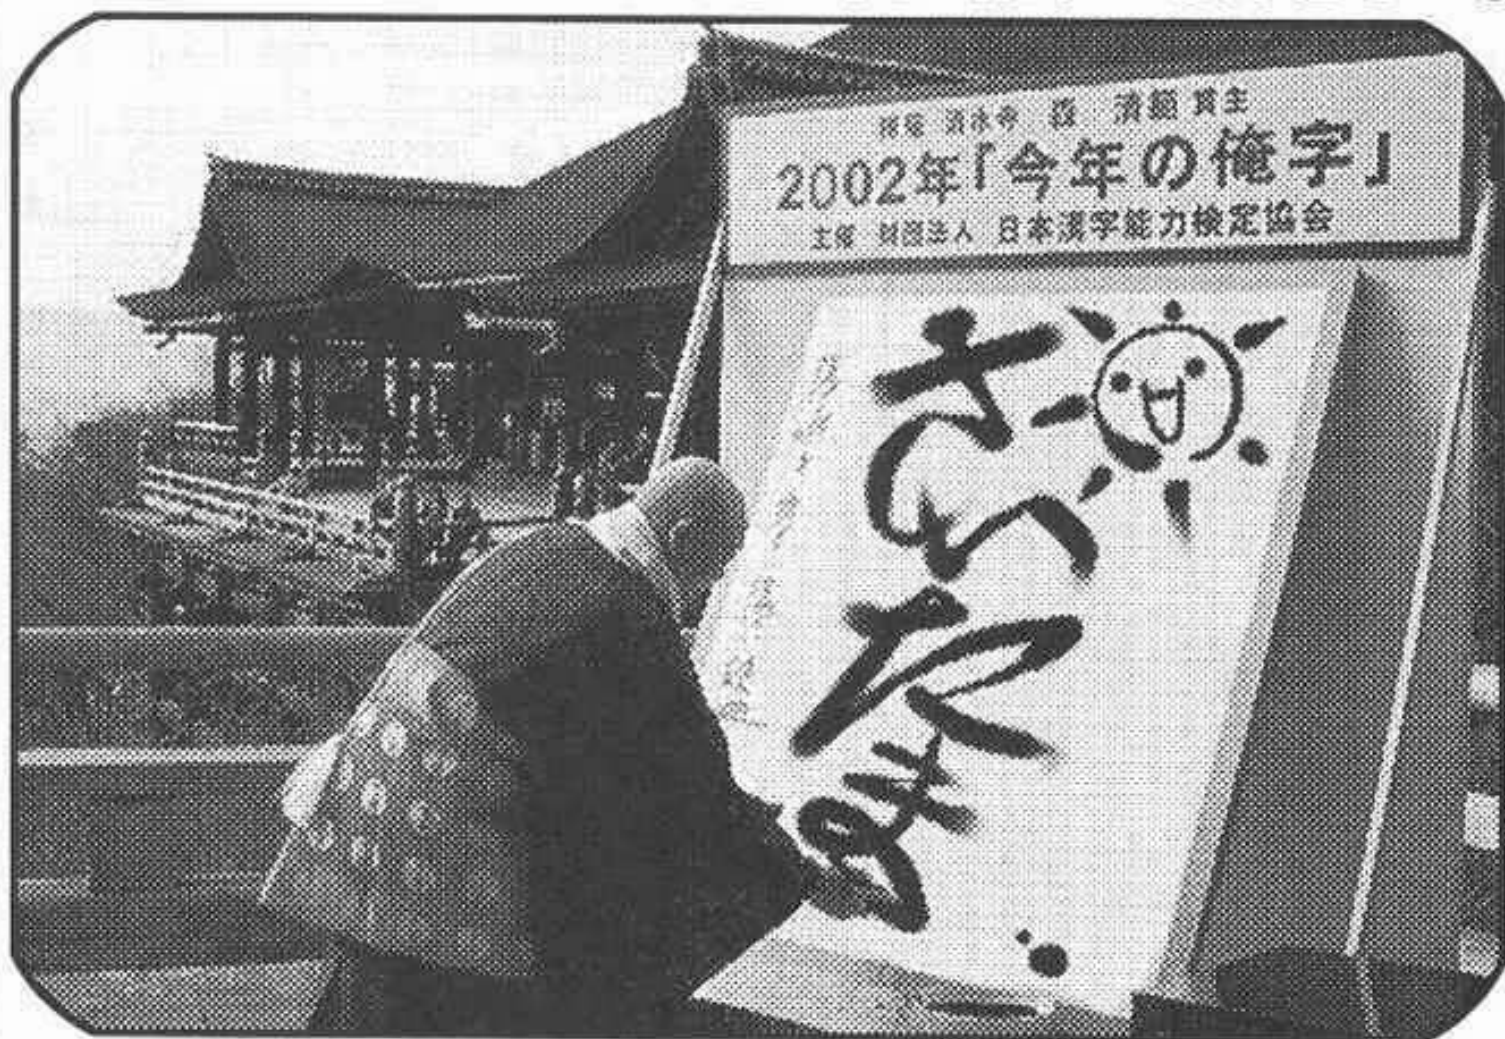 揮毫 清水寺 森 清範 貫主
2002年「今年の俺字」
主催 財団法人 日本漢字能力検定協会
さいたま